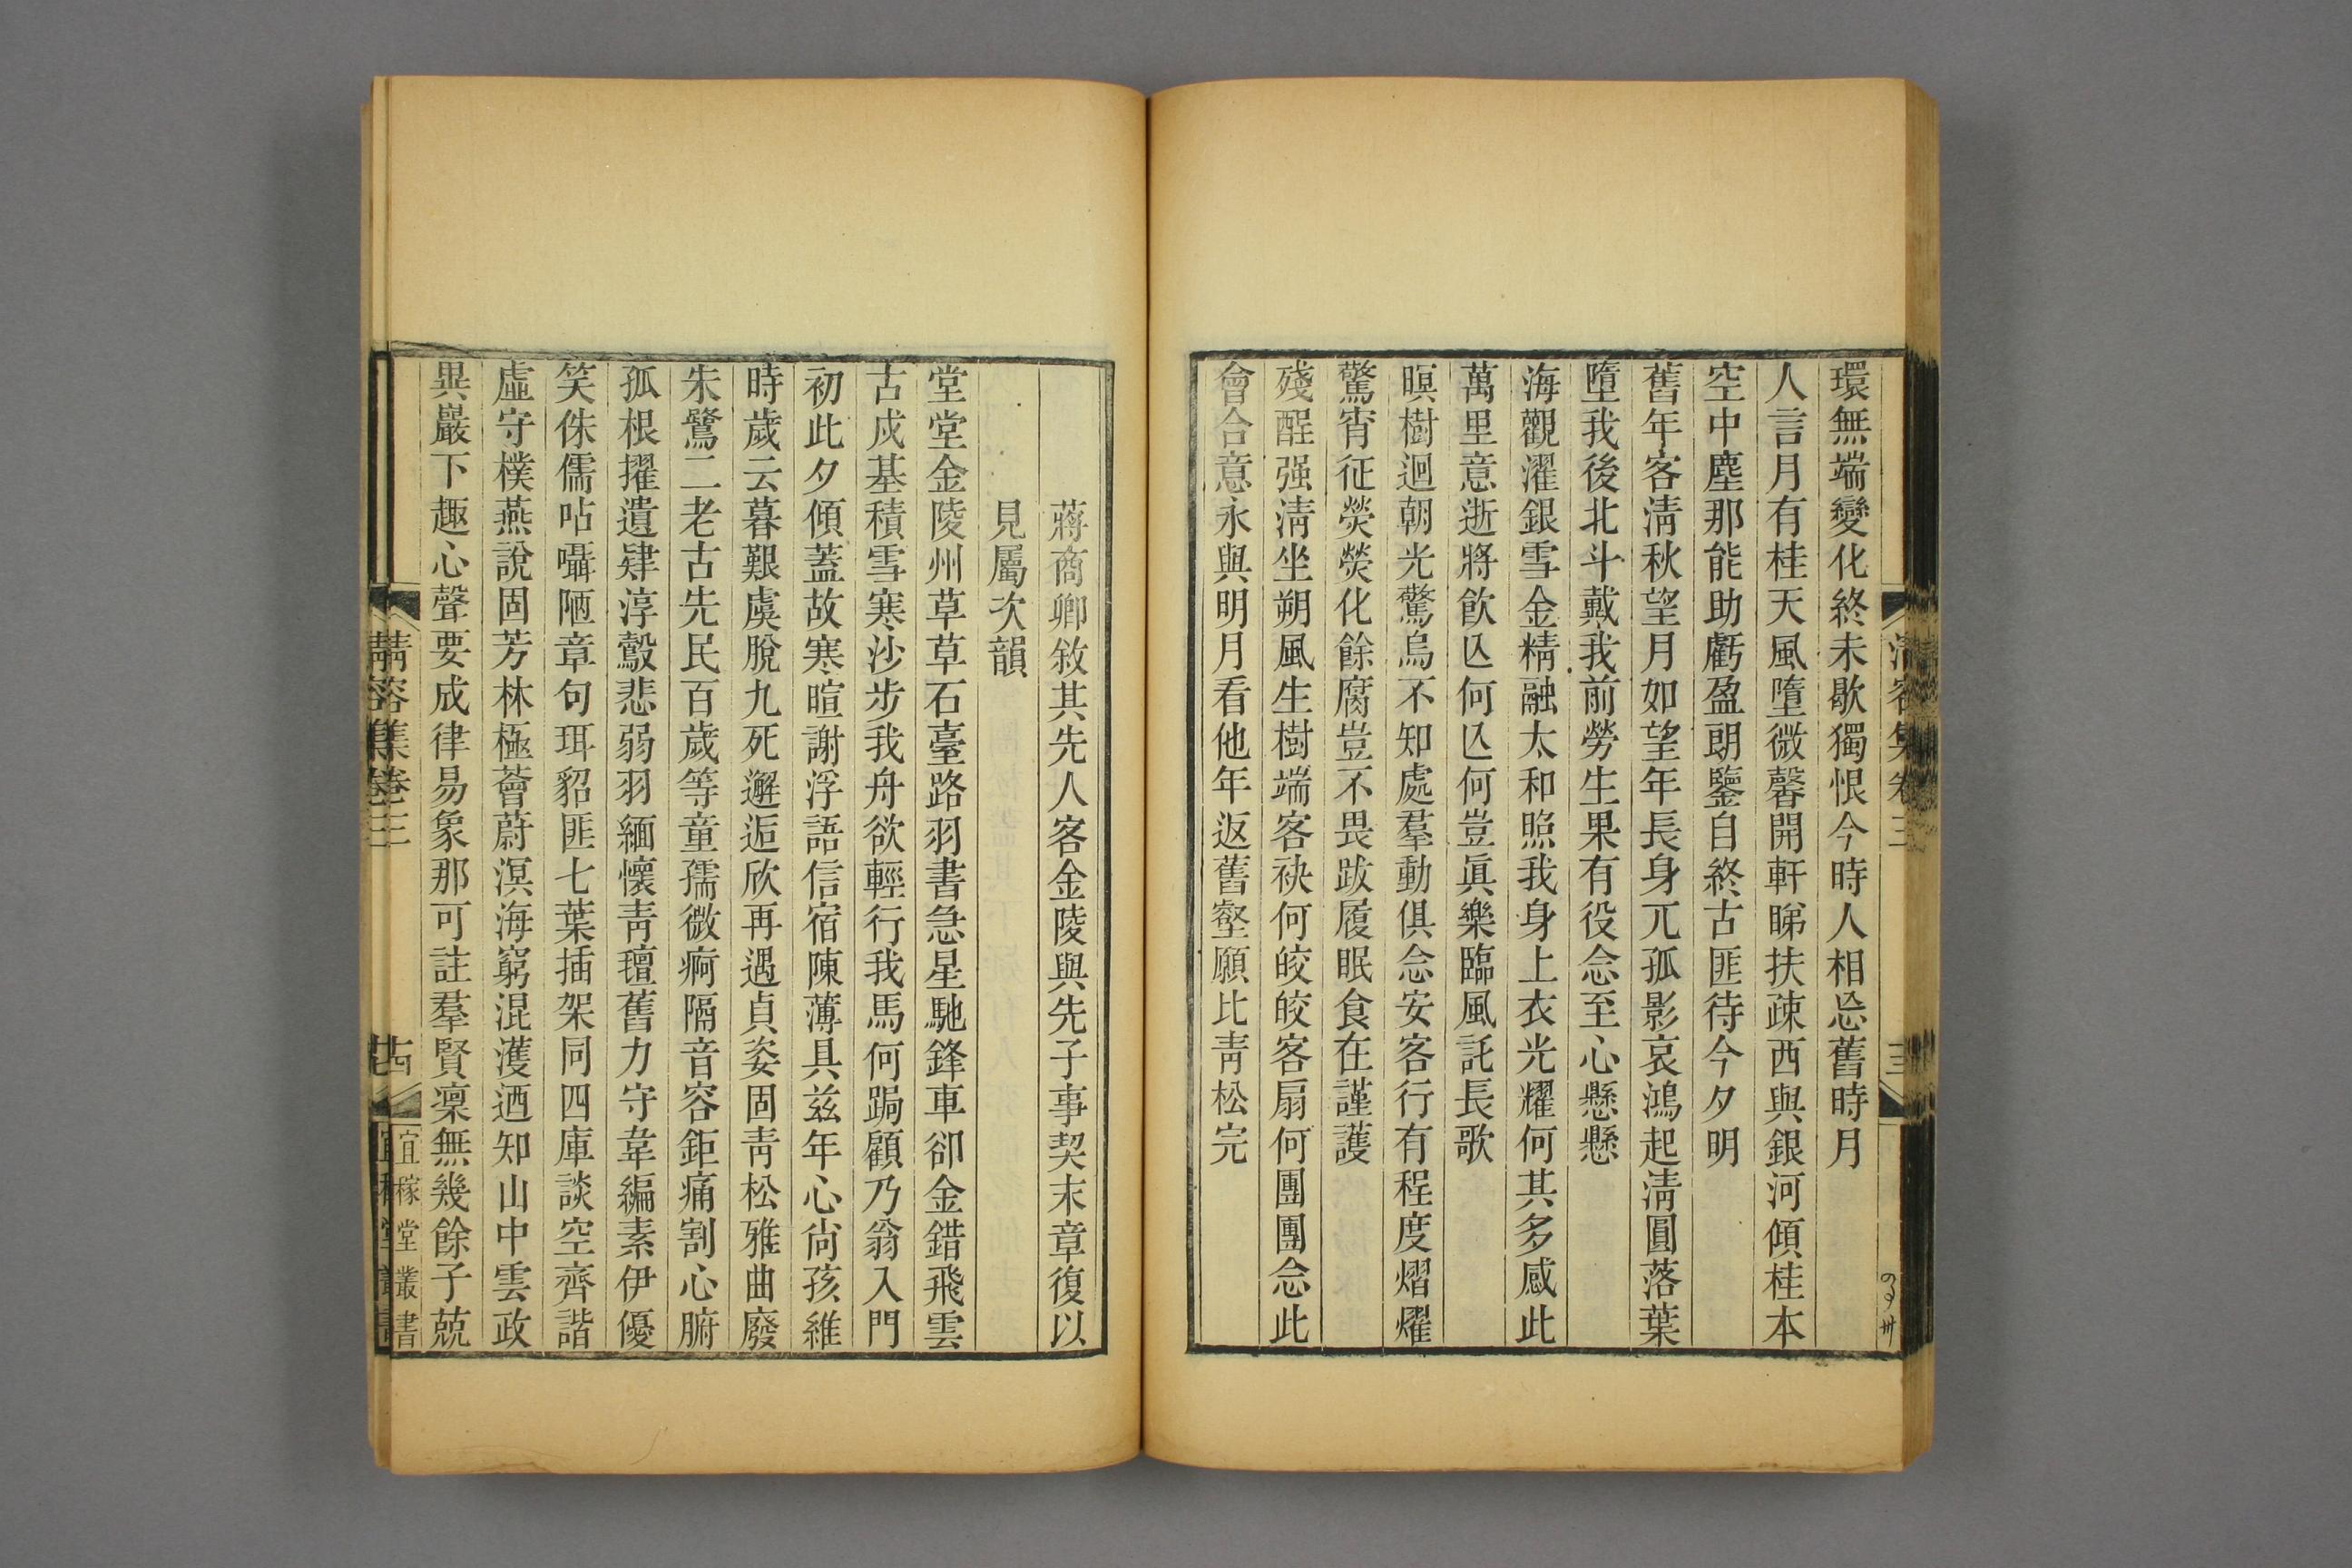 環無端變化終未歇獨恨今時人相忘舊時月
人言月有桂天風墮微馨開軒睇扶疎西與銀河傾桂本
空中塵那能助虧盈朗鑒自終古匪待今夕明
舊年客淸秋望月如望年長身兀孤影哀鴻起淸圓落葉
墮我後北斗戴我前勞生果有役念至心懸懸
海觀濯銀雪金精融太和照我身上衣光耀何其多感此
萬里意逝將飮亾何亾何豈眞樂臨風託長歌
暝樹迴朝光驚烏不知處羣動俱念安客行有程度熠燿
驚宵征熒熒化餘腐豈不畏跋履眠食在謹護
殘酲强淸坐朔風生樹端客袂何皎皎客扇何團團念此
會合意永與明月看他年返舊壑願比靑松完
蔣商卿敘其先人客金陵與先子事契末章復以
見屬次韻
堂堂金陵州草草石臺路羽書急星馳鋒車卻金錯飛雲
古戍基積雪寒沙步我舟欲輕行我馬何跼顧乃翁入門
初此夕傾蓋故寒暄謝浮語信宿陳薄具兹年心尙孩維
時歲云暮艱虞脫九死邂逅欣再遇貞姿固靑松雅曲廢
朱鷺二老古先民百歲等童孺微痾隔音容鉅痛割心腑
孤根擢遺肄淳鷇悲弱羽緬懷靑氊舊力守韋編素伊優
笑侏儒呫囁陋章句珥貂匪七葉插架同四庫談空齊諧
虛守樸燕說固芳林極薈蔚溟海窮混濩迺知山中雲政
異巖下趣心聲要成律易象那可註羣賢凜無幾餘子兢
淸容集卷三
宜稼堂叢書